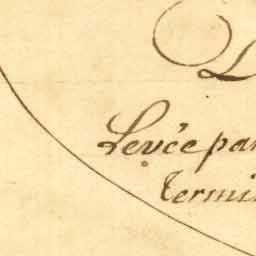 Levée par
termi